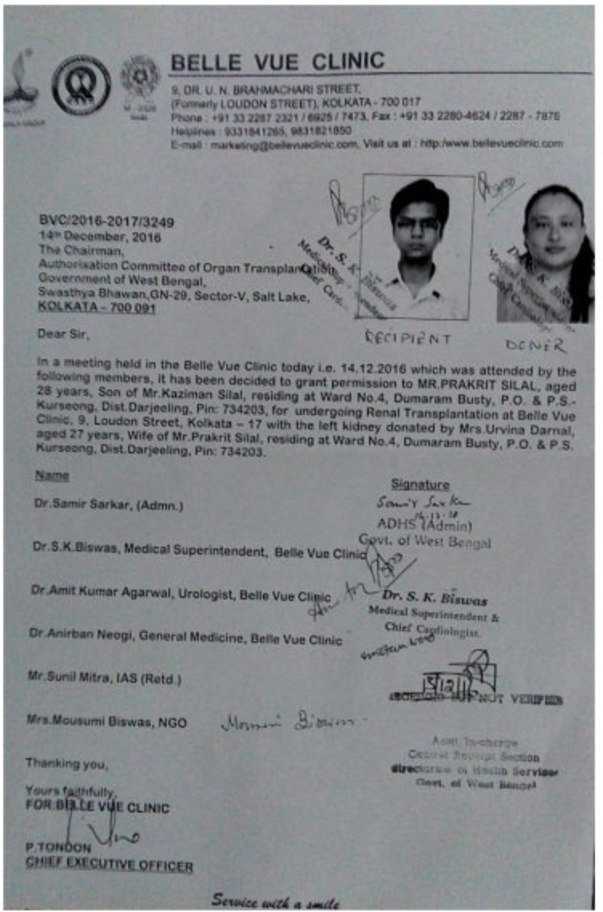 BELLE VUE CLINIC
9, DR. U. N. BRAHMACHARI STREET,
(Formerly LOUDON STREET), KOLKATA - 700 017
Phone : +91 33 2287 2321 / 6925 / 7473, Fax : +91 33 2280-4624 / 2287 - 7876
Helplines : 9331841265, 9831821850
E-mail : marketing@bellevueclinic.com, Visit us at : http:/www.bellevueclinic.com
BVC/2016-2017/3249
14th December, 2016
The Chairman,
Authorisation Committee of Organ Transplantation
Government of West Bengal,
Swasthya Bhawan,GN-29, Sector-V, Salt Lake,
KOLKATA – 700 091
Dr. S. K. Biswas
RECIPIENT
DONER
Dear Sir,
In a meeting held in the Belle Vue Clinic today i.e. 14.12.2016 which was attended by the
following members, it has been decided to grant permission to MR.PRAKRIT SILAL, aged
28 years, Son of Mr.Kaziman Silal, residing at Ward No.4, Dumaram Busty, P.O. & P.S.-
Kurseong, Dist.Darjeeling, Pin: 734203, for undergoing Renal Transplantation at Belle Vue
Clinic, 9, Loudon Street, Kolkata – 17 with the left kidney donated by Mrs.Urvina Darnal,
aged 27 years, Wife of Mr.Prakrit Silal, residing at Ward No.4, Dumaram Busty, P.O. & P.S.
Kurseong, Dist.Darjeeling, Pin: 734203.
Name
Signature
Dr.Samir Sarkar, (Admn.)
Samir Sarkar
ADHS (Admin)
Govt. of West Bengal
Dr.S.K.Biswas, Medical Superintendent, Belle Vue Clinic
Dr.Amit Kumar Agarwal, Urologist, Belle Vue Clinic
Dr. S. K. Biswas
Medical Superintendent &
Chief Cardiologist.
Dr.Anirban Neogi, General Medicine, Belle Vue Clinic
Mr.Sunil Mitra, IAS (Retd.)
RECEIVED BUT NOT VERIFIED
Mrs.Mousumi Biswas, NGO
Mousumi Biswas
Asstt. In-charge
Central Receipt Section
Directorate of Health Services
Govt. of West Bengal
Thanking you,
Yours faithfully,
FOR BELLE VUE CLINIC
P.TONDON
CHIEF EXECUTIVE OFFICER
Service with a smile